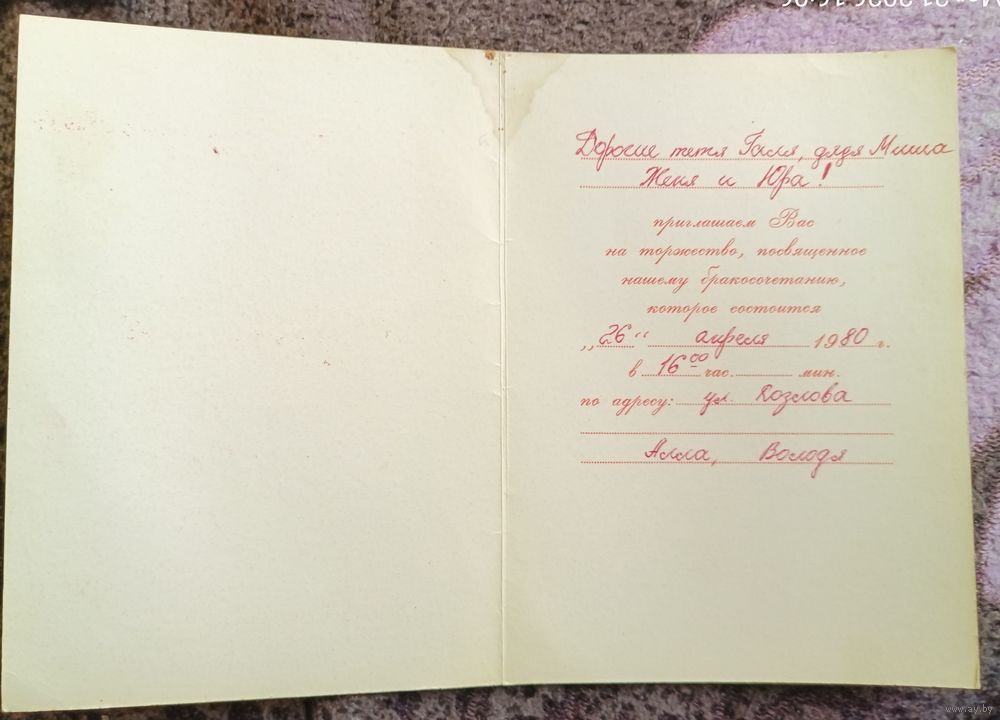 Дорогие тетя Галя, дядя Миша
Женя и Юра!
приглашаем Вас
на торжество, посвященное
нашему бракосочетанию,
которое состоится
„26“ апреля 1980 г.
в 16 00 час. мин.
по адресу: ул. Козлова
Алла, Володя
www.ay.by